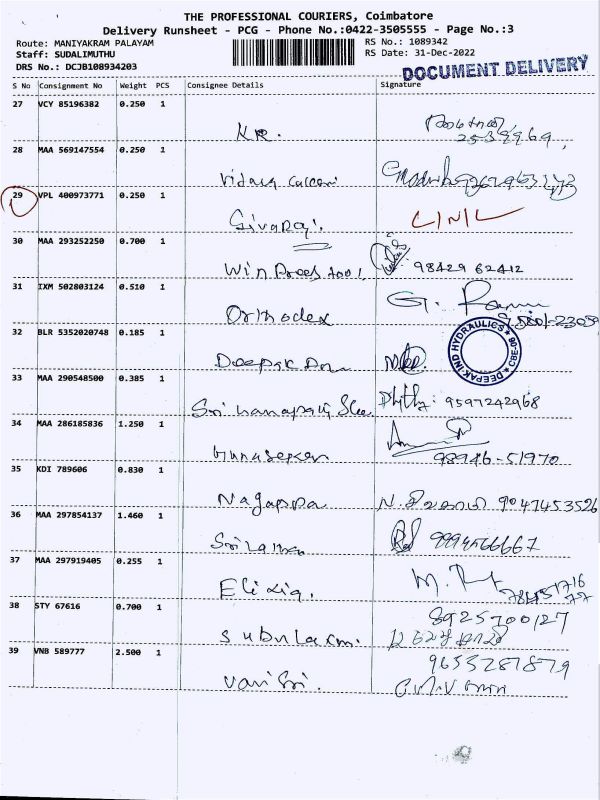 THE PROFESSIONAL COURIERS, Coimbatore
Delivery Runsheet - PCG - Phone No.:0422-3505555 - Page No.:3
Route: MANIYAKRAM PALAYAM
RS No.: 1089342
Staff: SUDALIMUTHU
RS Date: 31-Dec-2022
DRS No.: DCJB108934203
DOCUMENT DELIVERY
S No Consignment No Weight PCS Consignee Details Signature
27 VCY 85196382 0.250 1
KR.
28 MAA 569147554 0.250 1
29 VPL 400973771 0.250 1
Sivaraj.
30 MAA 293252250 0.700 1
98429 62412
31 IXM 502803124 0.510 1
Orthodex
32 BLR 5352020748 0.185 1
Deepak
DEEPAK IND HYDRAULICS
33 MAA 290548500 0.385 1
Sri 9597242968
34 MAA 286185836 1.250 1
Gunasekar 98946-51970
35 KDI 789606 0.830 1
Nagappa 9047453526
36 MAA 297854137 1.460 1
9994566667
37 MAA 297919405 0.255 1
38 STY 67616 0.700 1
8925700127
Subulaxmi.
39 VNB 589777 2.500 1
9655287879
Vani Sri.